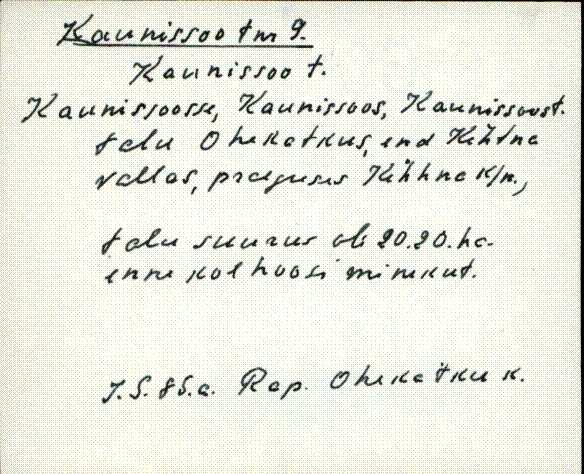 Kaunissoo tn 9.
Kaunissoo t.
Kaunissoosse, Kaunissoos, Kaunissoost.
talu Ohekatkus, end Kehtna
vallas, praeguses Kehtna k/n.,
talu suurus oli 20.20.ha.
enne kolhoosi minekut.
I.S. 85.a. Rap. Ohekatku k.